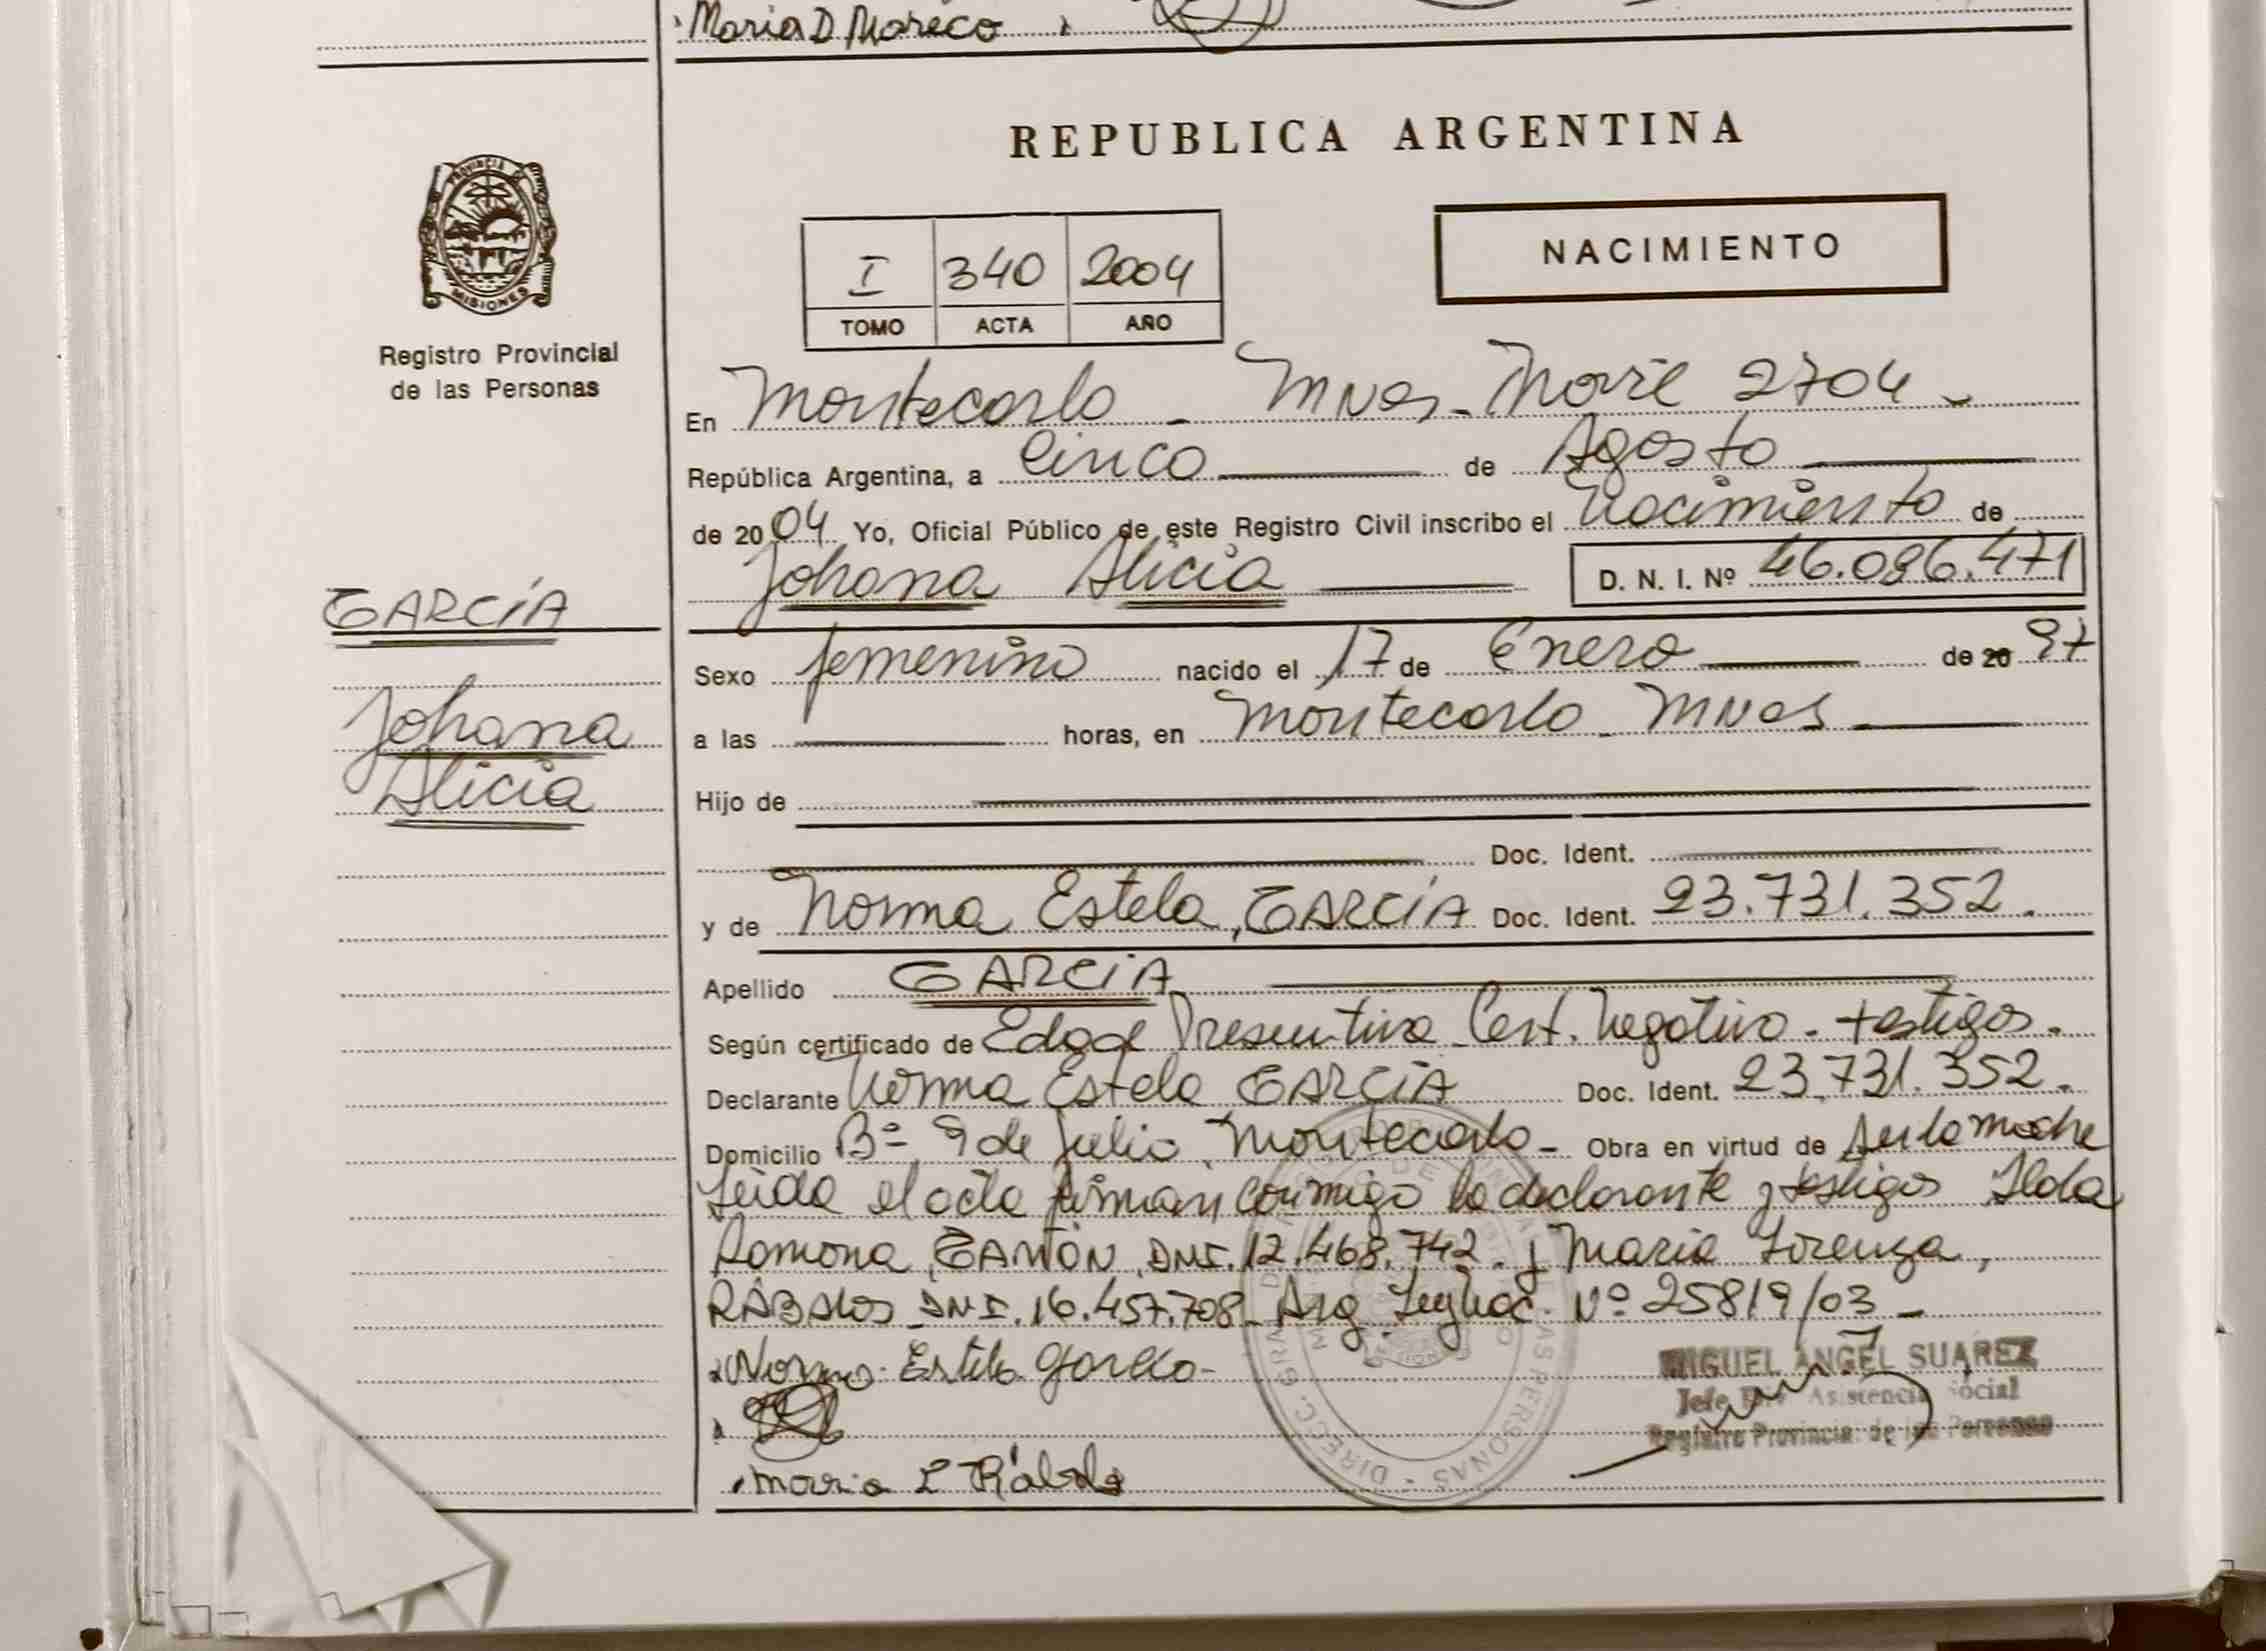 Maria D Moreco
REPUBLICA ARGENTINA
PROVINCIA DE
MISIONES
Registro Provincial
de las Personas
NACIMIENTO
I 340 2004
TOMO ACTA AÑO
En Montecarlo - Mnes - Movil 2704 -
República Argentina, a Cinco de Agosto
de 2004 Yo, Oficial Público de este Registro Civil inscribo el Nacimiento de
Johana Alicia D. N. I. Nº 46.096.471
GARCÍA
Johana
Alicia
Sexo femenino nacido el 17 de Enero de 20 97
a las horas, en Montecarlo - Mnes -
Hijo de
Doc. Ident.
y de Norma Estela, GARCÍA Doc. Ident. 23.731.352.
Apellido GARCÍA
Según certificado de Edad Presuntiva - Cert. Negativo - testigos.
Declarante Norma Estela GARCÍA Doc. Ident. 23.731.352.
Domicilio Bº 9 de Julio, Montecarlo - Obra en virtud de ser la madre
Leida el acta firman conmigo la declarante y testigos Ilda
Ramona, DNI. 12.468.742. y Maria Lorenza,
RÁBALOS DNI. 16.457.708 - Nº 25819/03 -
Norma Estela Garcia
MIGUEL ANGEL SUAREZ
Jefe Asistencia Social
Registro Provincial de las Personas
Maria L Rábalo